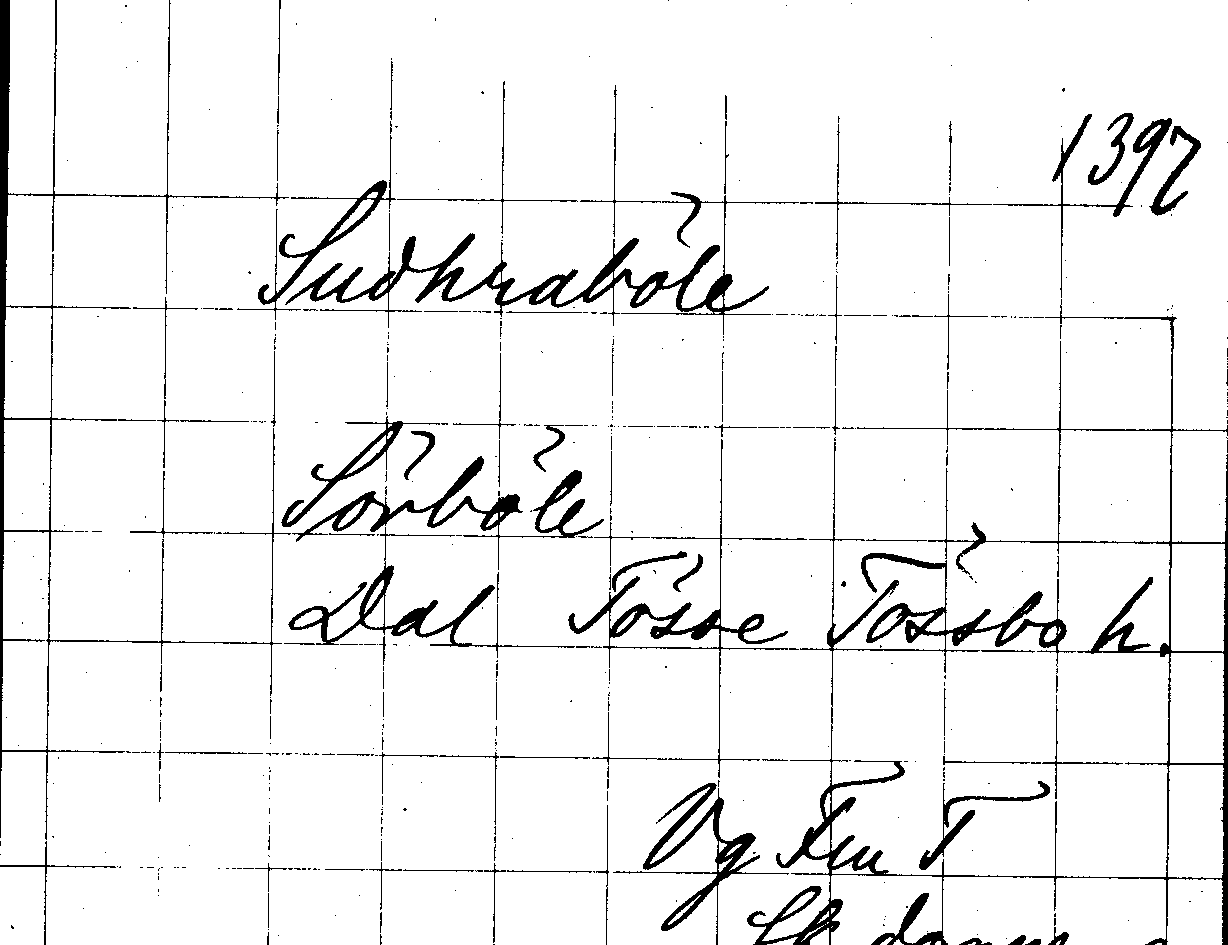 1397
Sudhraböle
Sörböle
Dal Tösse Tössbo h.
Vg Fm T